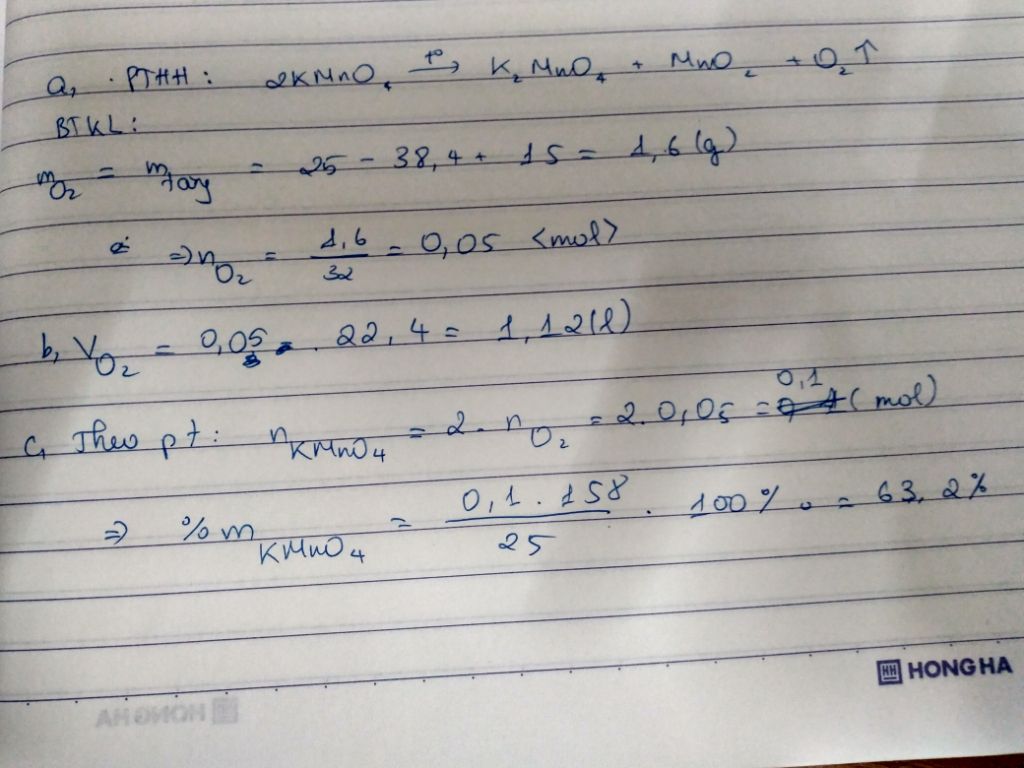 a, . PTHH: 2KMnO₄ —t°→ K₂MnO₄ + MnO₂ + O₂↑
BTKL:
m_O₂ = m_tăng = 25 - 38,4 + 15 = 1,6 (g)
⇒ n_O₂ = 1,6/32 = 0,05 <mol>
b, V_O₂ = 0,05 . 22,4 = 1,12 (l)
c, Theo pt: n_KMnO₄ = 2. n_O₂ = 2. 0,05 = 0,1 (mol)
⇒ %m_KMnO₄ = 0,1 . 158/25 . 100% = 63,2%
HH HONG HA